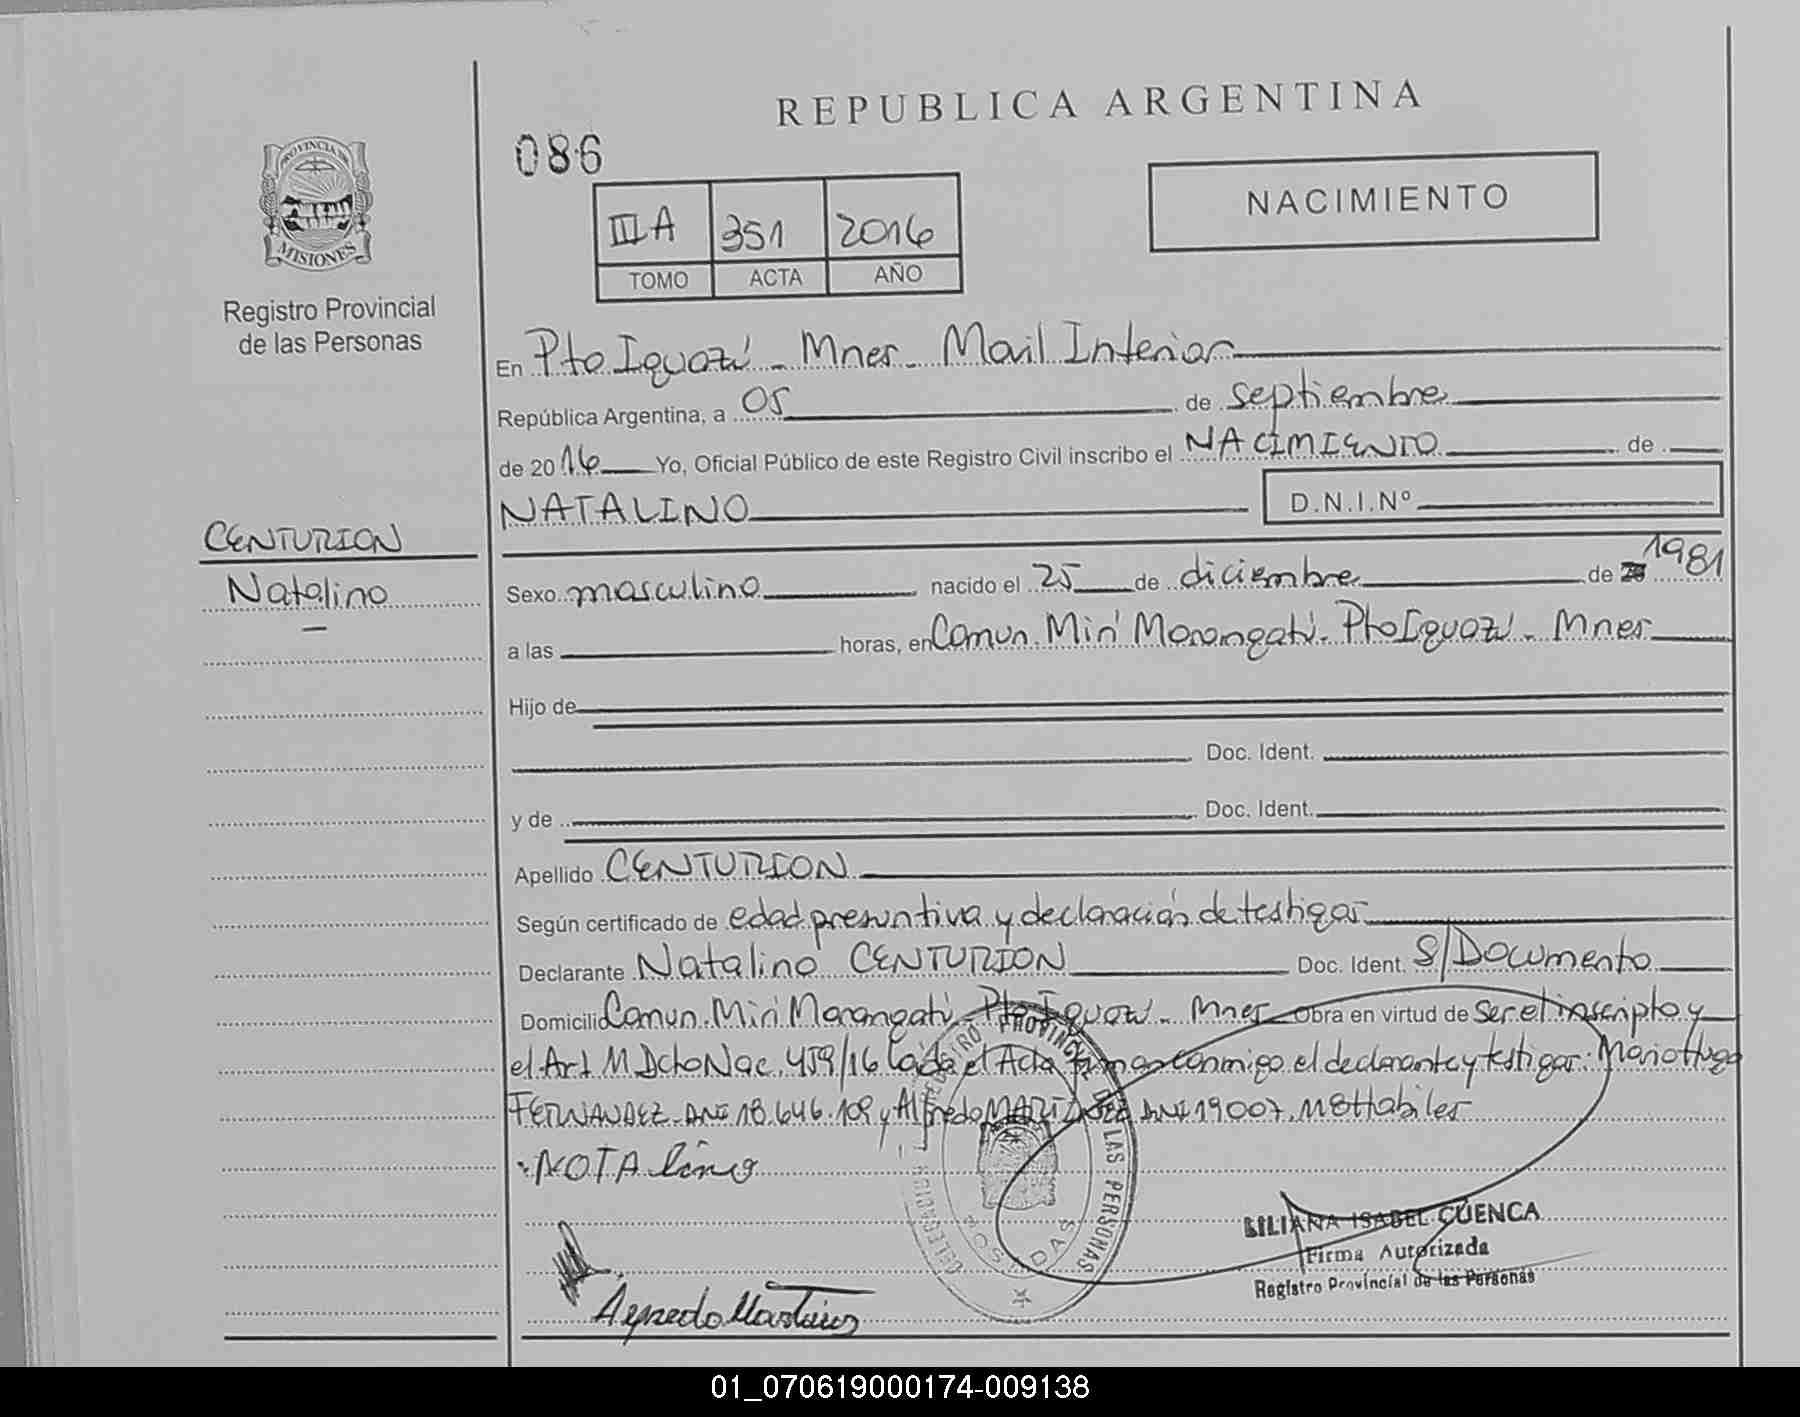 REPUBLICA ARGENTINA
086
NACIMIENTO
PROVINCIA DE
MISIONES
III A 351 2016
TOMO ACTA AÑO
Registro Provincial
de las Personas
En Pto Iguazú - Mnes - Movil Interior
República Argentina, a 05 de septiembre
de 2016 Yo, Oficial Público de este Registro Civil inscribo el NACIMIENTO de
NATALINO D.N.I.Nº
CENTURION
Natalino
Sexo masculino nacido el 25 de diciembre de 1981
a las horas, en Comun. Miri Marangatú - Pto Iguazú - Mnes
Hijo de
Doc. Ident.
y de Doc. Ident.
Apellido CENTURION
Según certificado de edad presuntiva y declaración de testigos
Declarante Natalino CENTURION Doc. Ident. S/Documento
Domicilio Comun. Miri Marangatú Pto Iguazú - Mnes Obra en virtud de ser el inscripto y
el Art 11 Dcto Nac. 459/16 Leída el Acta firman conmigo el declarante y testigos: Mario Hugo
FERNANDEZ DNI 18.646.109 y Alfredo MARTINEZ DNI 19007.118 Habiles
NOTA lino
REGISTRO PROVINCIAL DE LAS PERSONAS
DELEGACION
POSADAS
LILIANA ISABEL CUENCA
Firma Autorizada
Registro Provincial de las Personas
Alfredo Martinez
01_070619000174-009138